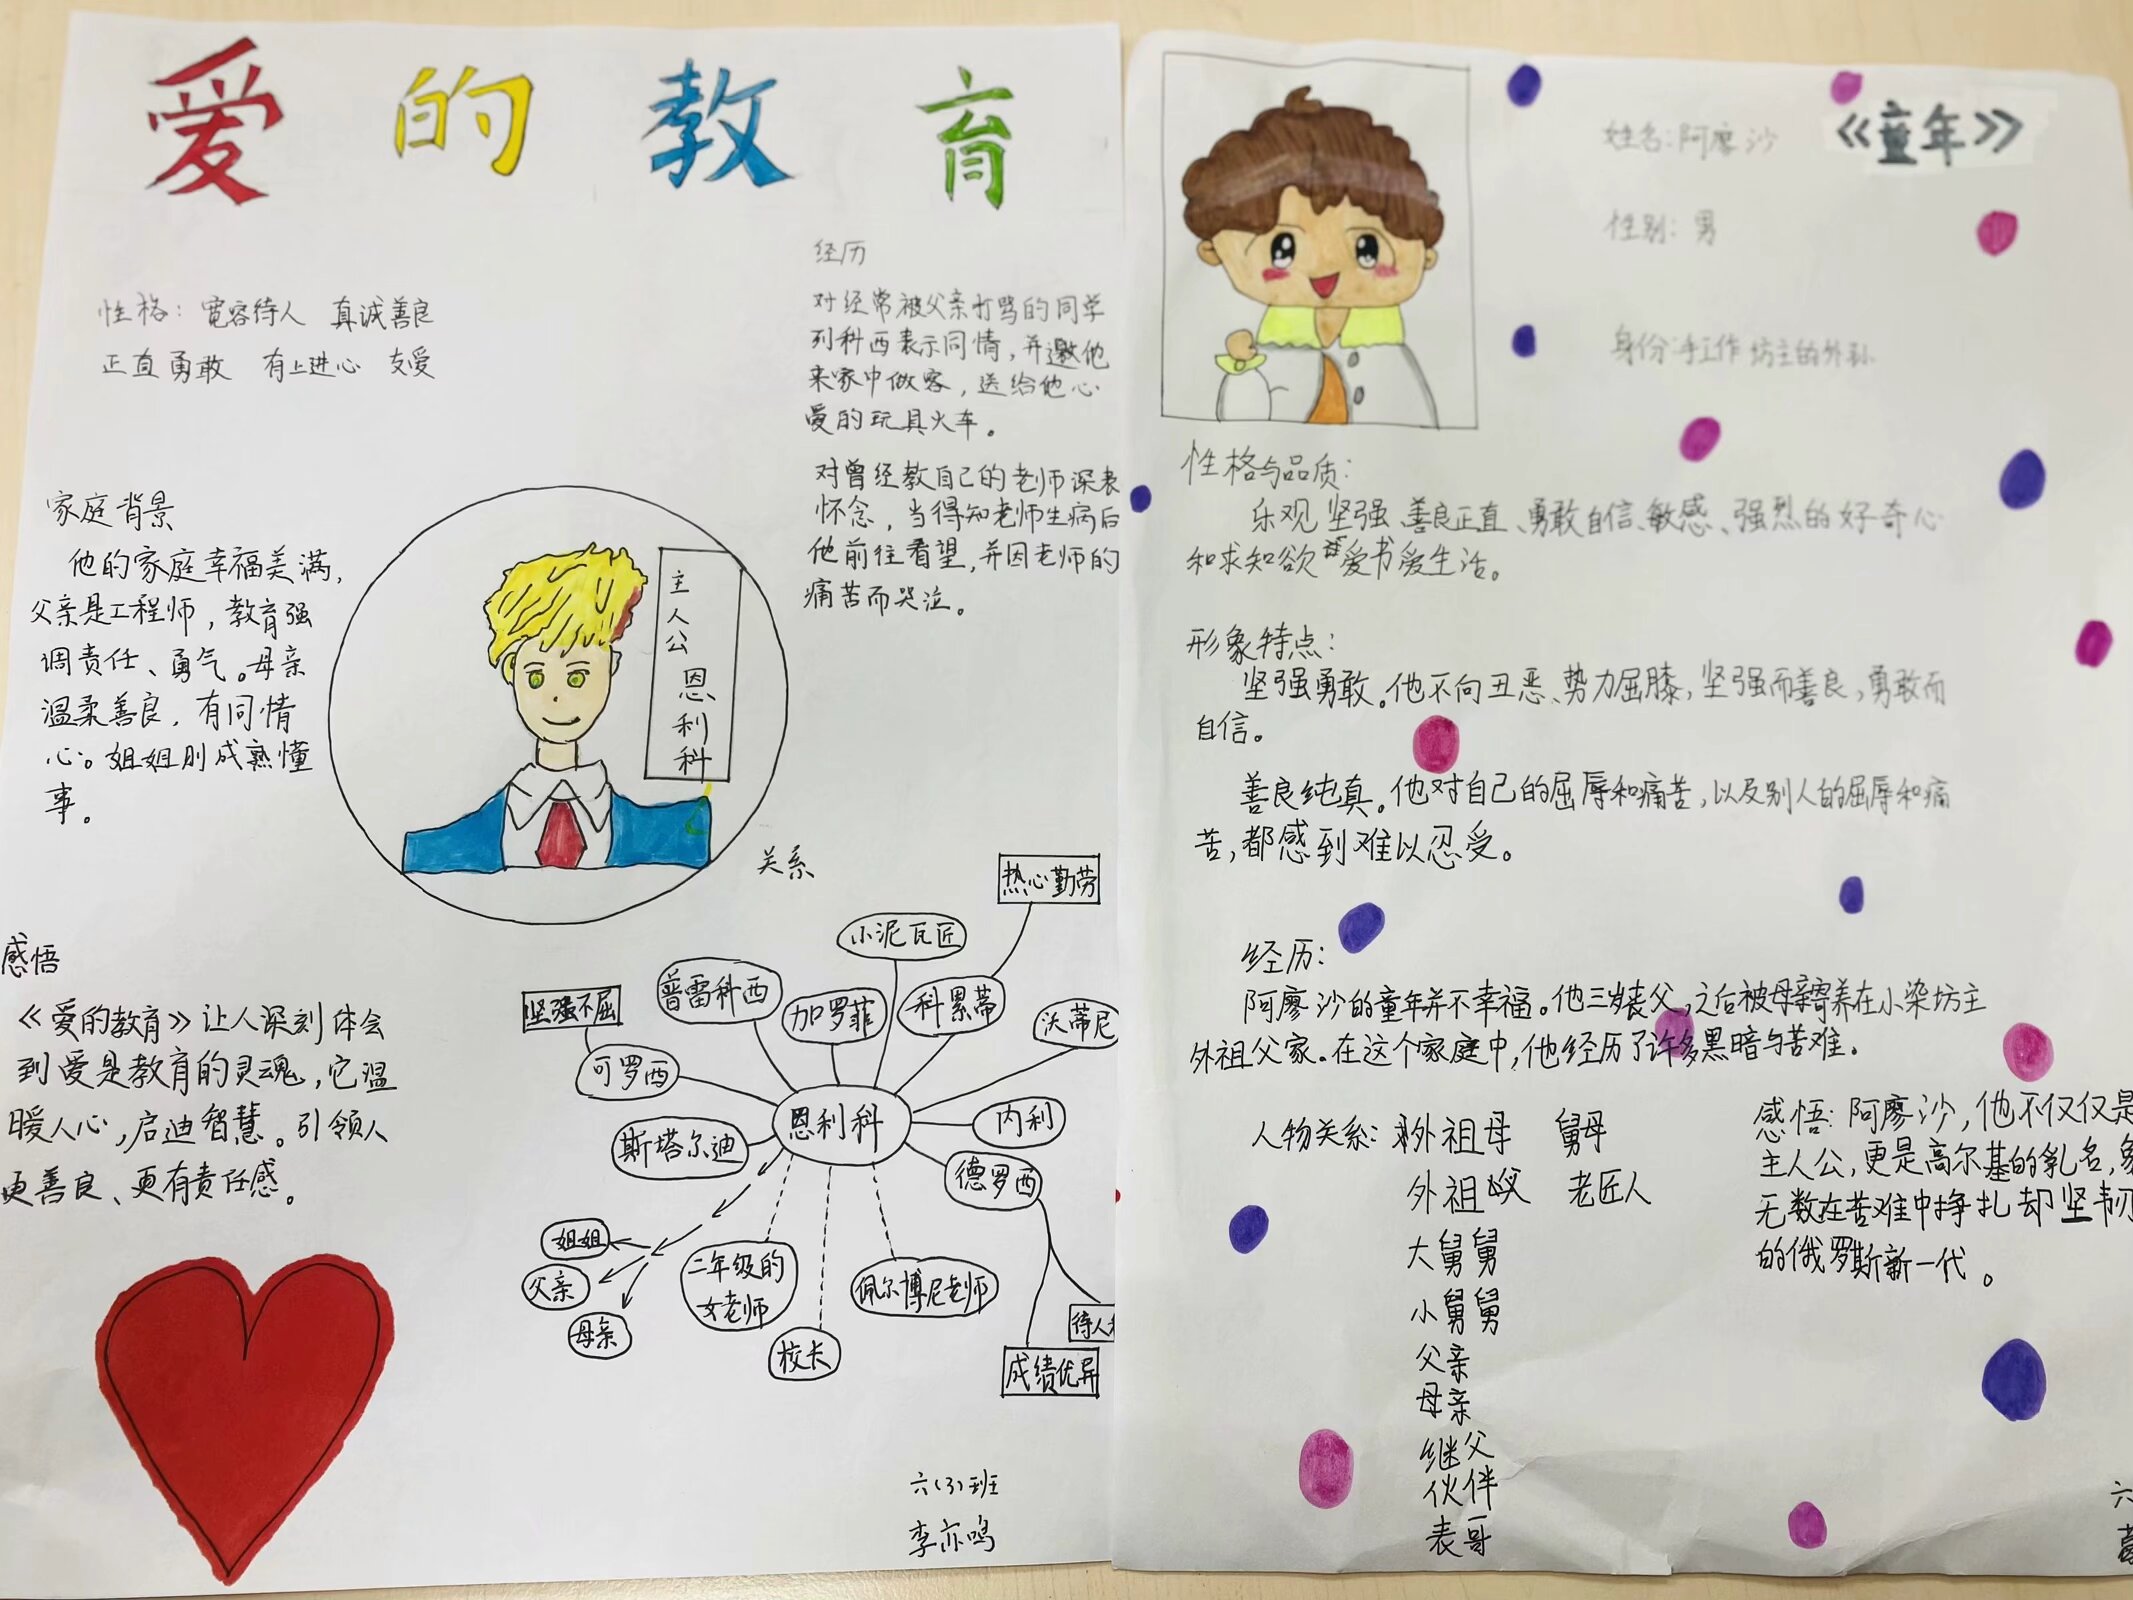 爱的教育
性格：宽容待人 真诚善良
正直勇敢 有上进心 友爱
经历
对经常被父亲打骂的同学
列科西表示同情，并邀他
来家中做客，送给他心
爱的玩具火车。
对曾经教自己的老师深表
怀念，当得知老师生病后
他前往看望，并因老师的
痛苦而哭泣。
家庭背景
他的家庭幸福美满，
父亲是工程师，教育强
调责任、勇气。母亲
温柔善良，有同情
心。姐姐则成熟懂
事。
主人公 恩利科
感悟
《爱的教育》让人深刻体会
到爱是教育的灵魂，它温
暖人心，启迪智慧。引领人
更善良、更有责任感。
关系
热心勤劳
小泥瓦匠
普雷科西
坚强不屈
加罗菲
科累蒂
沃蒂尼
可罗西
恩利科
内利
斯塔尔迪
德罗西
姐姐
父亲
母亲
二年级的
女老师
校长
佩尔博尼老师
待人
成绩优异
六(3)班
李亦鸣
《童年》
姓名：阿廖沙
性别：男
身份：手工作坊主的外孙
性格与品质：
乐观、坚强、善良正直、勇敢自信、敏感、强烈的好奇心
和求知欲 爱书爱生活。
形象特点：
坚强勇敢。他不向丑恶、势力屈膝，坚强而善良，勇敢而
自信。
善良纯真。他对自己的屈辱和痛苦，以及别人的屈辱和痛
苦，都感到难以忍受。
经历：
阿廖沙的童年并不幸福。他三岁丧父，之后被母亲寄养在小染坊主
外祖父家。在这个家庭中，他经历了许多黑暗与苦难。
人物关系：外祖母 舅母
外祖父 老匠人
大舅舅
小舅舅
父亲
母亲
继父
伙伴
表哥
感悟：阿廖沙，他不仅仅是
主人公，更是高尔基的乳名，象
无数在苦难中挣扎却坚韧
的俄罗斯新一代。
六